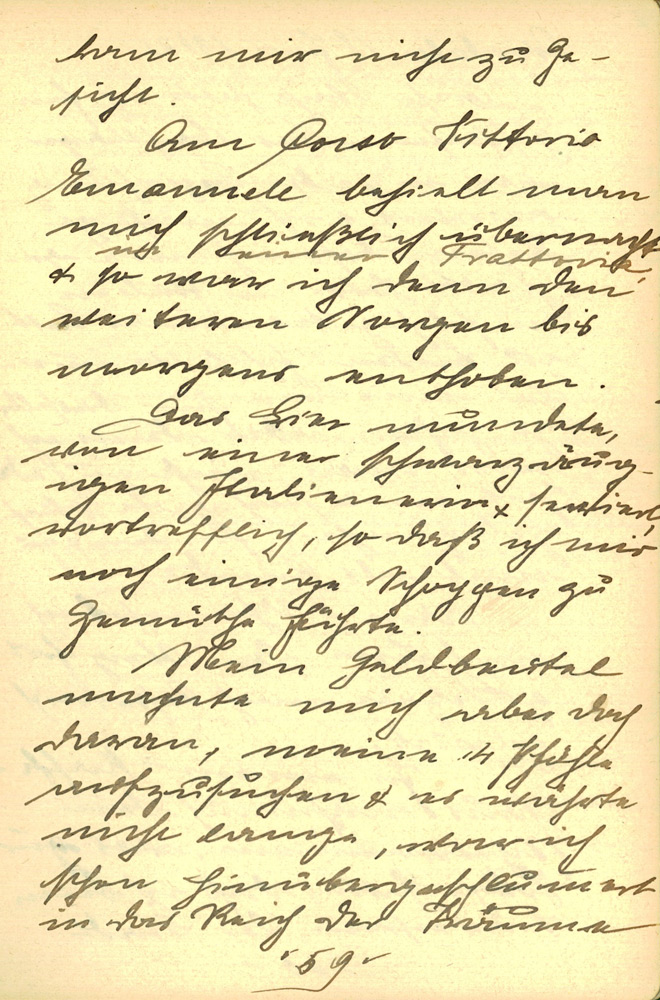 kam mir nicht zu Ge-
sicht.
Am Corso Vittorio
Emanuele behielt man
mich schließlich übernacht
in einer Trattoria,
& so war ich denn den
weiteren Sorgen bis
morgens enthoben.
Das Bier mundete,
von einer schwarzäug-
igen Italienerin serviert,
vortrefflich, so daß ich mir
noch einige Schoppen zu
Gemüthe führte.
Mein Geldbeutel
mahnte mich aber doch
daran, meine 4 Pfähle
aufzusuchen & es währte
nicht lange, war ich
schon hinübergeschlummert
in das Reich der Träume
59